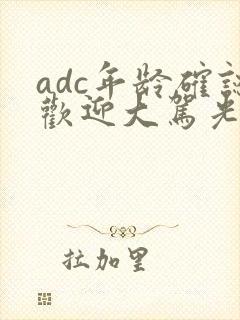 adc年龄確認
歡迎大駕光
拉加里